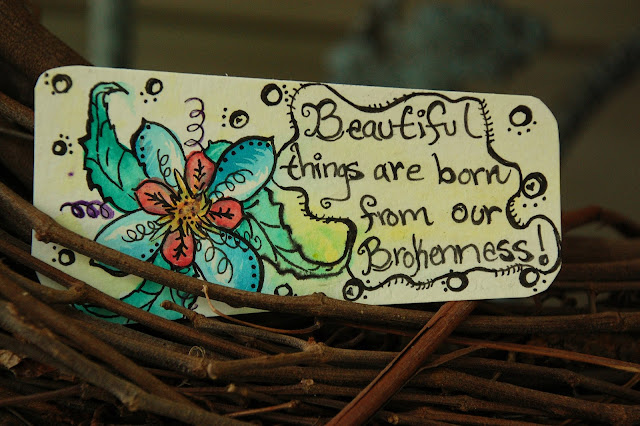 Beautiful
things are born
from our
Brokenness!